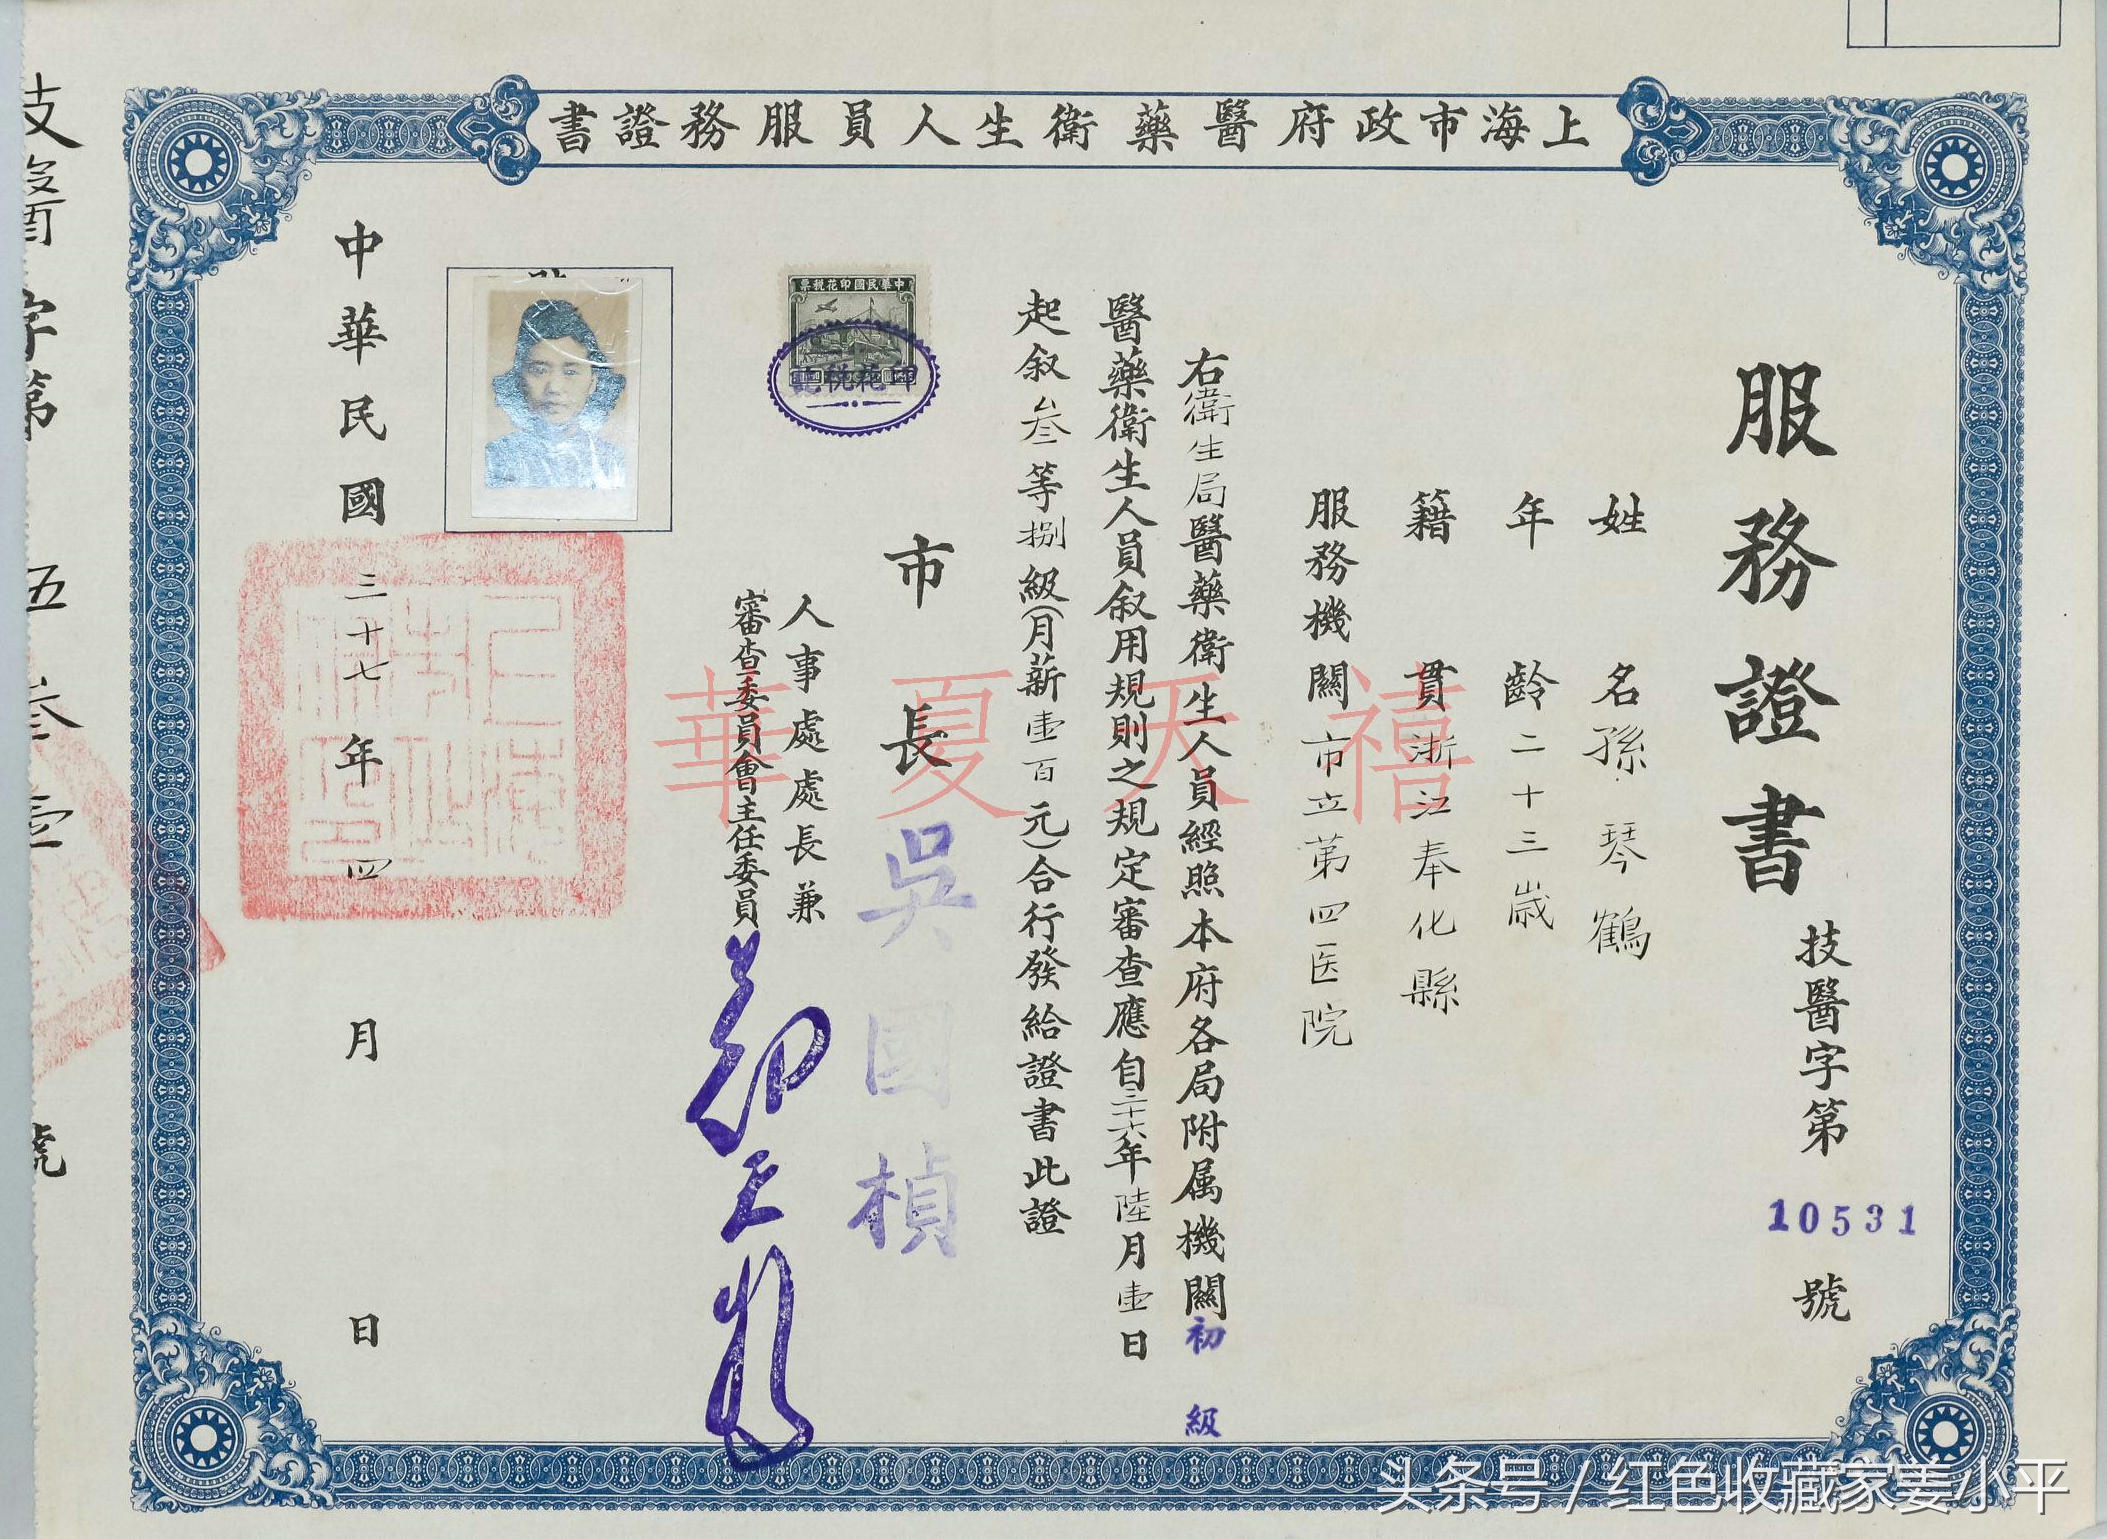 上海市政府醫藥衛生人員服務證書
服務證書
技醫字第 10531 號
姓名孫琴鶴
年齡二十三歲
籍貫浙江奉化縣
服務機關市立第四医院
右衛生局醫藥衛生人員經照本府各局附属機關初級
醫藥衛生人員叙用規則之規定審查應自三十六年陸月壹日
起叙叁等捌級(月薪壹百元)合行發給證書此證
市長 吳國楨
人事處處長兼
審查委員會主任委員
中華民國印花税票
印花税訖
中華民國三十七年四月 日
技醫字第 五 叁壹 號
華夏天禧
头条号 / 红色收藏家姜小平